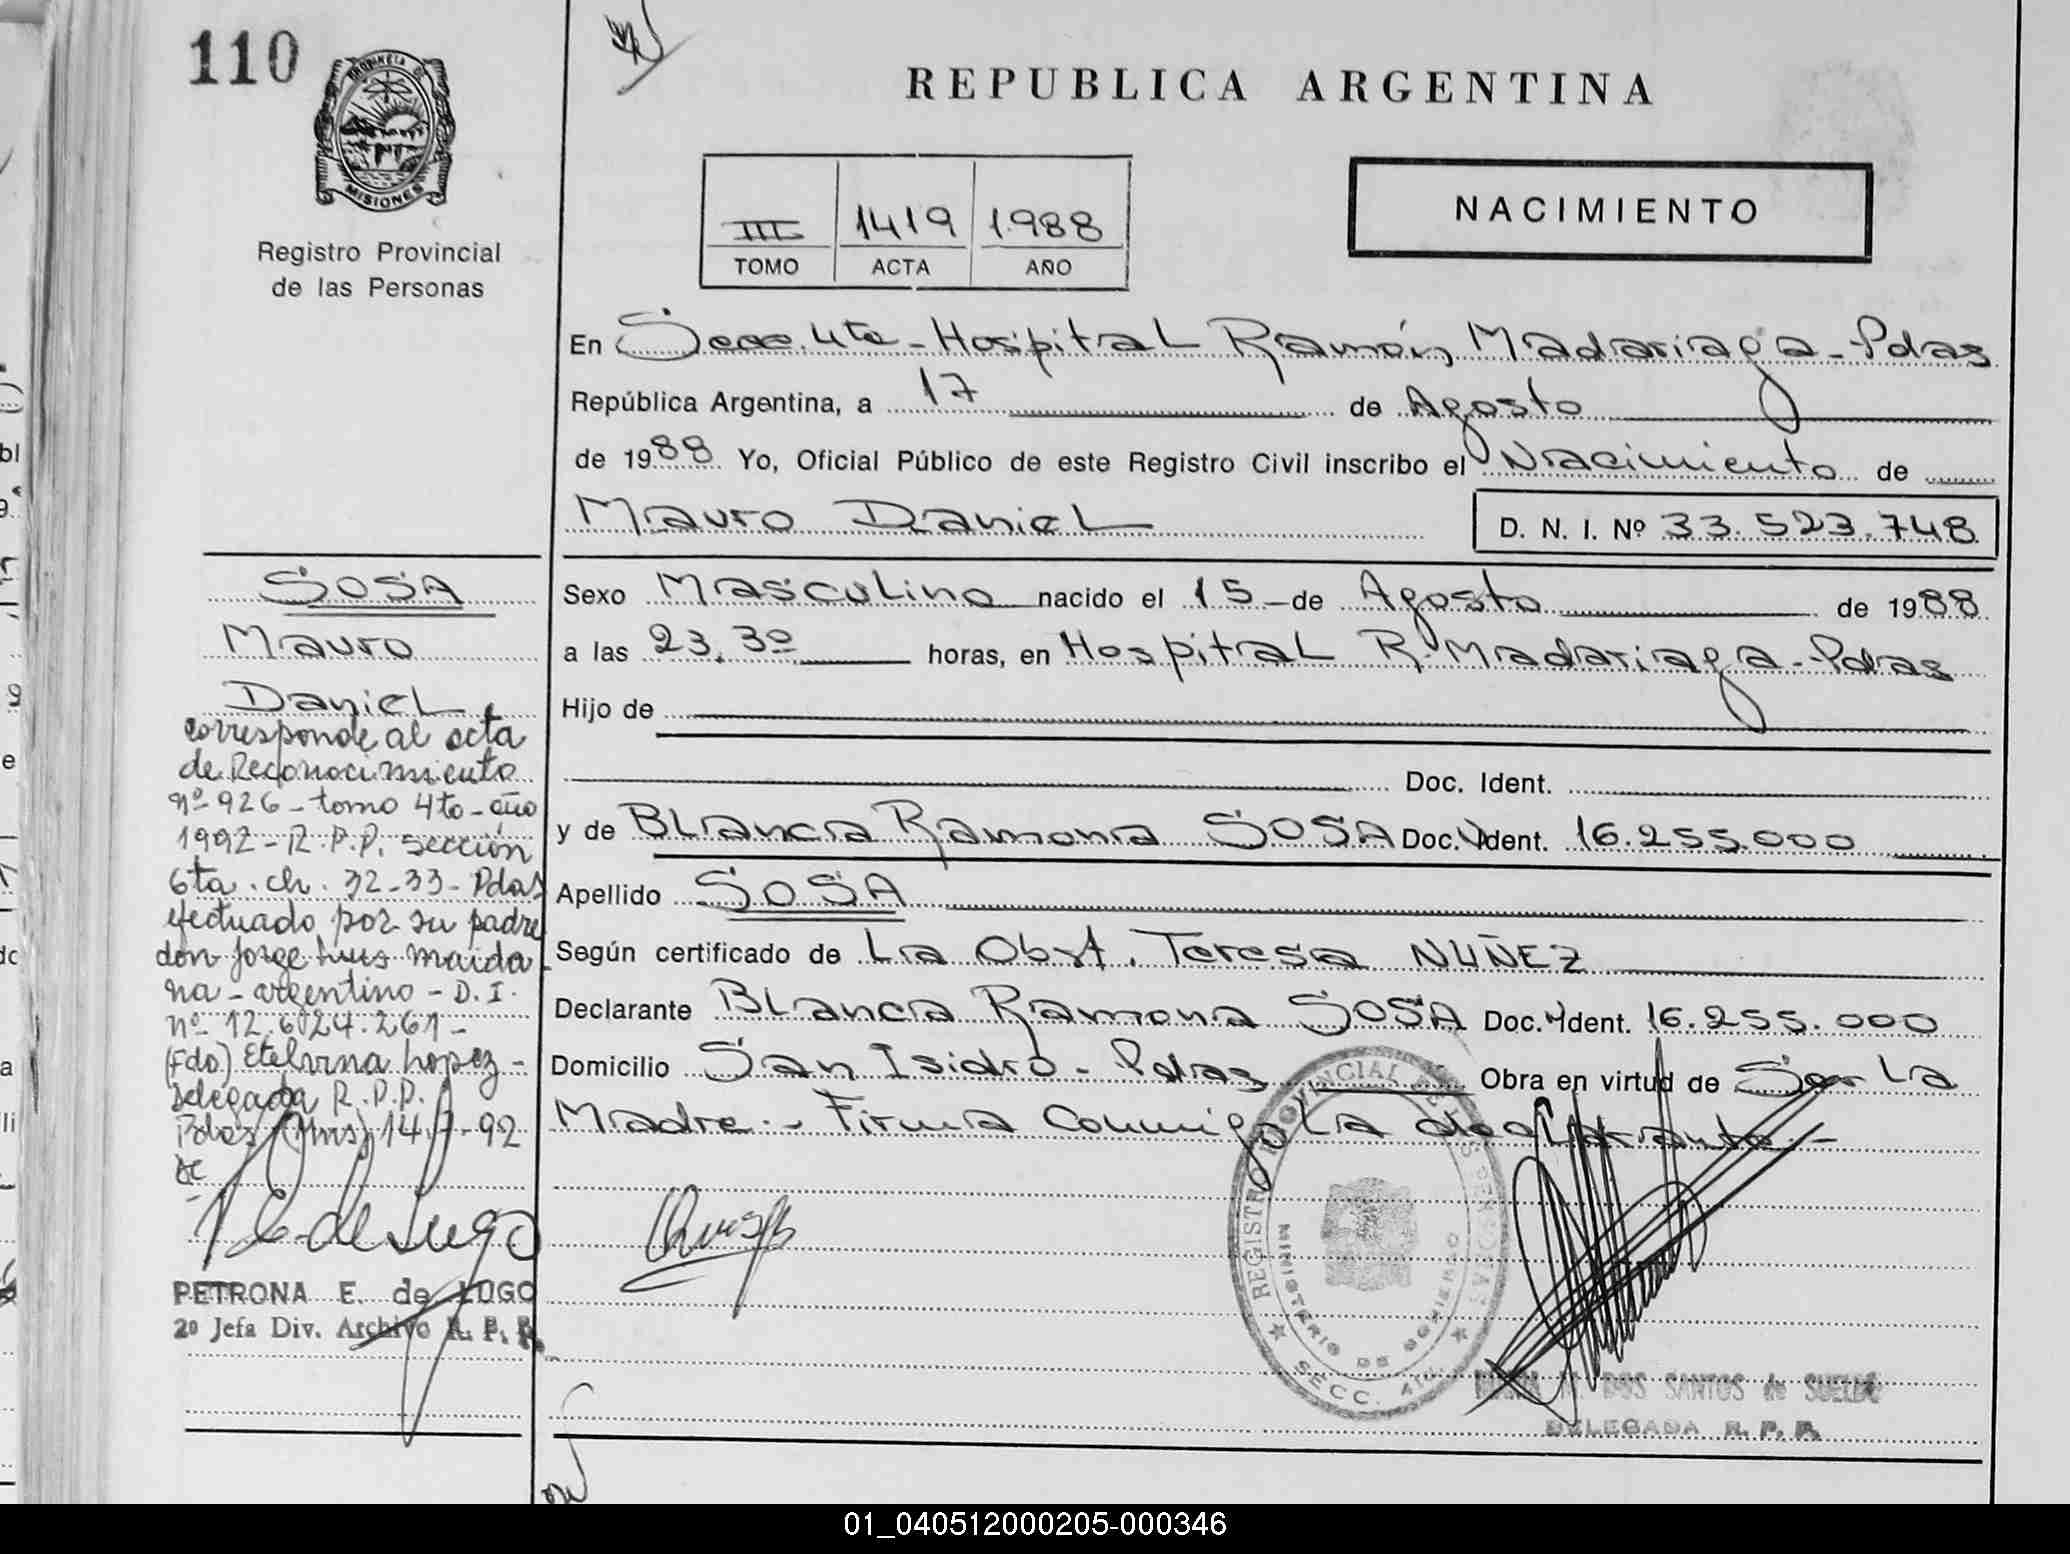 110
PROVINCIA DE
MISIONES
Registro Provincial
de las Personas
REPUBLICA ARGENTINA
III 1419 1.988
TOMO ACTA AÑO
NACIMIENTO
En Secc. 4ta - Hospital Ramón Madariaga - Pdas
República Argentina, a 17 de Agosto
de 1988 Yo, Oficial Público de este Registro Civil inscribo el Nacimiento de
Mauro Daniel D. N. I. Nº 33.523.748
Sexo Masculino nacido el 15 de Agosto de 1988
a las 23.30 horas, en Hospital R. Madariaga - Pdas
Hijo de
Doc. Ident.
y de Blanca Ramona SOSA Doc. Ident. 16.255.000
Apellido SOSA
Según certificado de La Obst. Teresa NUÑEZ
Declarante Blanca Ramona SOSA Doc. Ident. 16.255.000
Domicilio San Isidro - Pdas Obra en virtud de Ser La
Madre.- Firma Conmigo La declarante.-
SOSA
Mauro
Daniel
corresponde al acta
de Reconocimiento
nº 926 - tomo 4to - año
1992 - R.P.P. sección
6ta. ch. 32-33 - Pdas
efectuado por su padre
don Jorge Luis Maida
na - argentino - D.I.
nº 12.624.261 -
(Fdo.) Etelvina Lopez -
Delegada R.P.P.
Pdas (Mns) 14-7-92
PETRONA E. de LUGO
2º Jefa Div. Archivo R. P. P.
REGISTRO PROVINCIAL DE LAS PERSONAS
MINISTERIO DE GOBIERNO
SECC. 4ta.
DOS SANTOS de SUELDO
DELEGADA R. P. P.
01_040512000205-000346